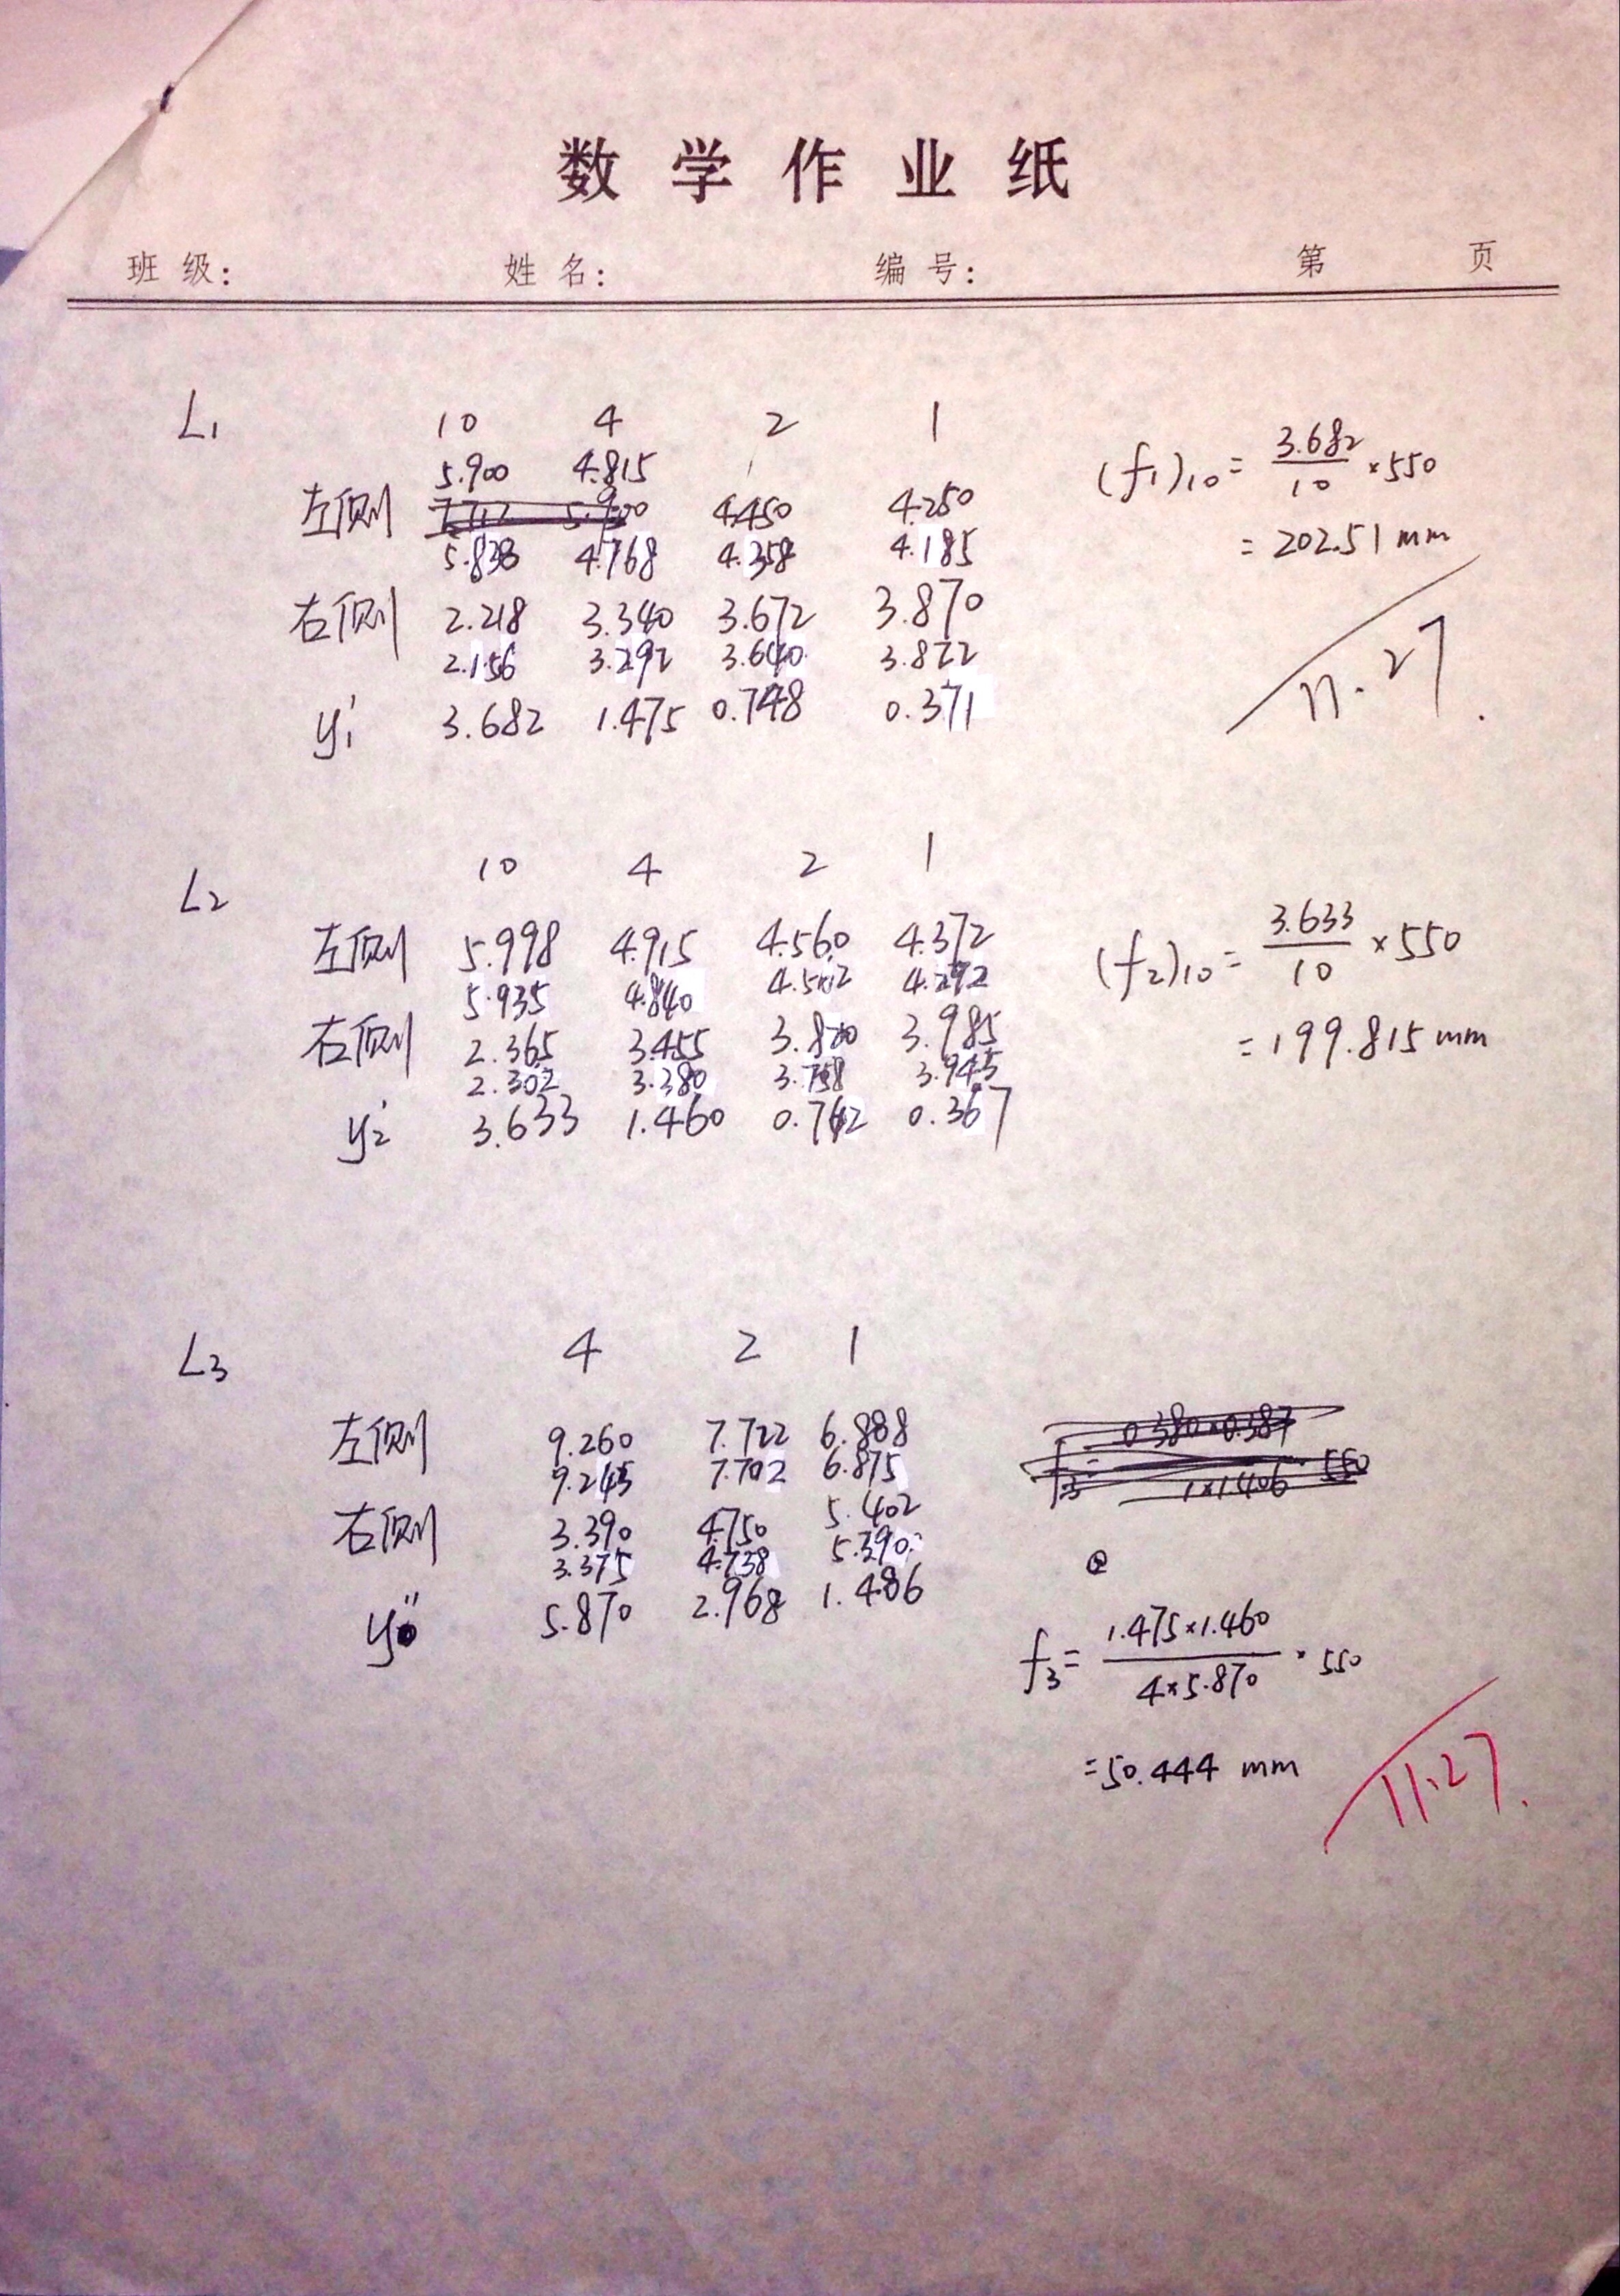 数学作业纸
班级: 姓名: 编号: 第 页
L1 10 4 2 1
5.900 4.815
左侧 4.450 4.250
5.838 4.768 4.358 4.185
右侧 2.218 3.340 3.672 3.870
2.156 3.292 3.640 3.822
y1' 3.682 1.475 0.748 0.371
(f1)10 = 3.682/10 × 550
= 202.51 mm
11.27.
L2 10 4 2 1
左侧 5.998 4.915 4.560 4.372
5.935 4.840 4.502 4.292
右侧 2.365 3.455 3.820 3.985
2.302 3.380 3.758 3.945
y2' 3.633 1.460 0.742 0.367
(f2)10 = 3.633/10 × 550
= 199.815 mm
L3 4 2 1
左侧 9.260 7.722 6.888
9.245 7.702 6.875
右侧 3.390 4.750 5.402
3.375 4.738 5.390
y0'' 5.870 2.968 1.486
f3 = 0.380×0.387/1×1.406 · 550
f3 = 1.475×1.460/4×5.870 · 550
= 50.444 mm
11.27.